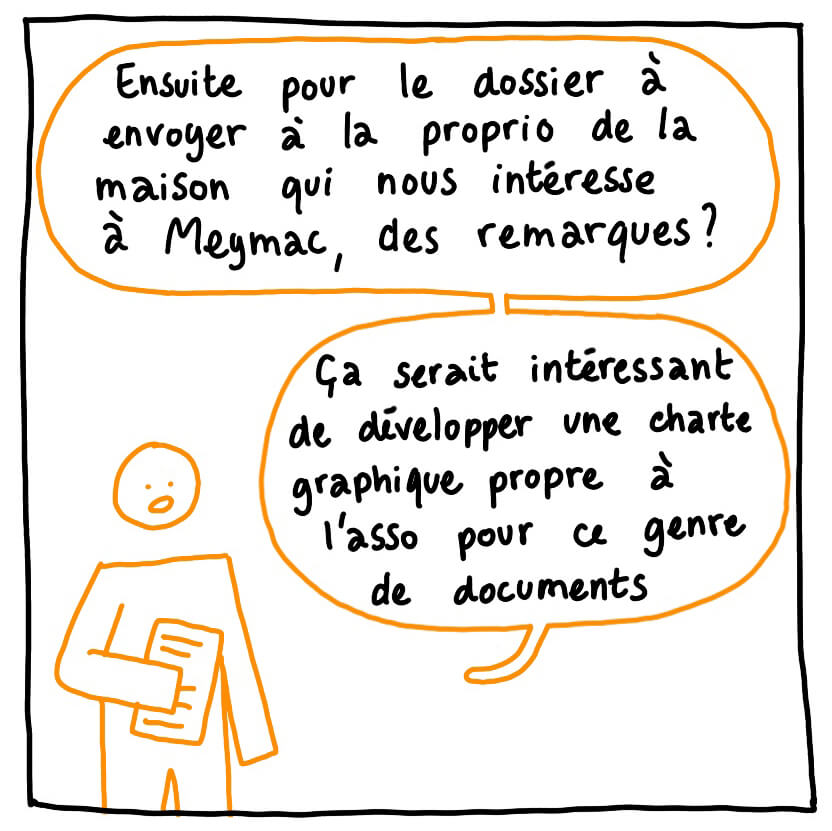 Ensuite pour le dossier à
envoyer à la proprio de la
maison qui nous intéresse
à Meymac, des remarques?
Ça serait intéressant
de développer une charte
graphique propre à
l'asso pour ce genre
de documents